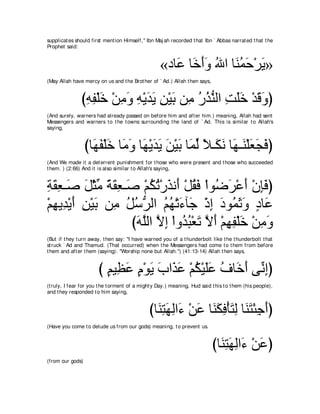 supplicates should first mention Himself,'' Ibn Majah recorded that Ibn `Abbas narrated that the
Prophet said:
«يَرْحَمُنَا اللهُ وَأَخَا عَادٍ»
(May Allah have mercy on us and the Brother of `Ad.) Allah then says,
(وَقَدْ خَلَتِ النُّذُرُ مِن بَيْنِ يَدَيْهِ وَمِنْ خَلْفِهِ)
(And surely, warners had already passed on before him and after him.) meaning, Allah had sent
Messengers and warners to the towns surrounding the land of `Ad. This is similar to Allah's
saying,
(فَجَعَلْنَـهَا نَكَـلاً لِّمَا بَيْنَ يَدَيْهَا وَمَا خَلْفَهَا)
(And We made it a deterrent punishment for those who were present and those who succeeded
them. ) (2:66) And it is also similar to Allah's saying,
(فَإِنْ أَعْرَضُواْ فَقُلْ أَنذَرْتُكُمْ صَـعِقَةً مِّثْلَ صَـعِقَةِ
عَادٍ وَثَمُودَ إِذْ جَآءَتْهُمُ الرُّسُلُ مِن بَيْنِ أَيْدِيهِمْ
وَمِنْ خَلْفِهِمْ أَلاَّ تَعْبُدُواْ إِلاَّ اللَّهَ)
(But if they turn away, then say: "I have warned you of a thunderbolt like the thunderbolt that
struck `Ad and Thamud. (That occurred) when the Messengers had come to them from before
them and after them (saying): "Worship none but Allah.'') (41:13-14) Allah then says,
(إِنِّى أَخَافُ عَلَيْكُمْ عَذَابَ يَوْمٍ عَظِيمٍ )
(truly, I fear for you the torment of a mighty Day.) meaning, Hud said this to them (his people),
and they responded to him saying,
(أَجِئْتَنَا لِتَأْفِكَنَا عَنْ ءَالِهَتِنَا)
(Have you come to delude us from our gods) meaning, to prevent us.
(عَنْ ءَالِهَتِنَا)
(from our gods)